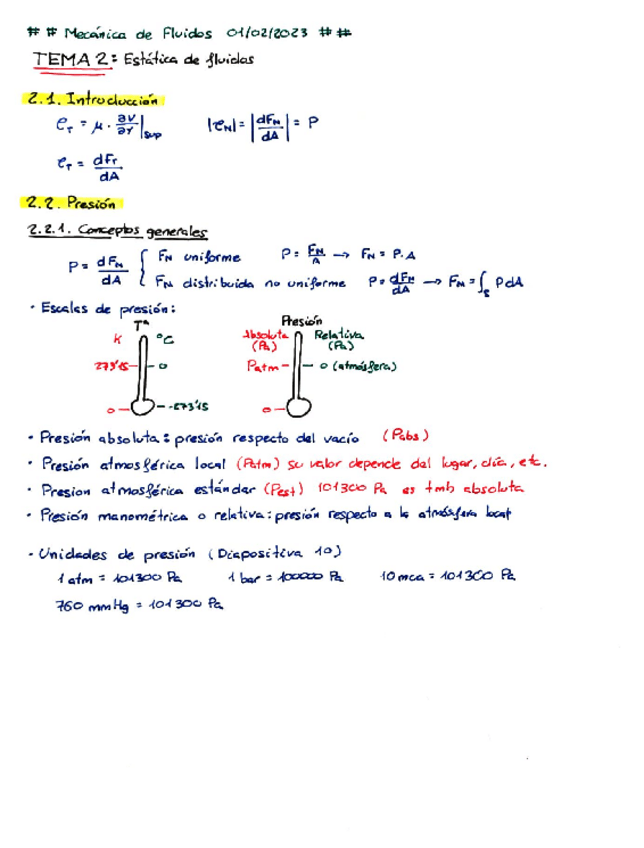 # # Mecánica de Fluidos 01/02/2023 # #
TEMA 2: Estática de fluidos
2.1. Introducción
τ_T = μ · ∂V/∂Y |sup    |τ_N| = |dF_N/dA| = P
τ_T = dF_T/dA
2.2. Presión
2.2.1. Conceptos generales
P = dF_N/dA { F_N uniforme    P = F_N/A → F_N = P·A
F_N distribuida no uniforme    P = dF_N/dA → F_N = ∫_S P dA
· Escalas de presión:
Tª    Presión
K    °C    Absoluta (Pa)    Relativa (Pa)
273'15    0    Patm    0 (atmósfera)
0    -273'15    0
· Presión absoluta: presión respecto del vacío (Pabs)
· Presión atmosférica local (Patm) su valor depende del lugar, día, etc.
· Presion atmosférica estándar (Pest) 101300 Pa es tmb absoluta
· Presión manométrica o relativa: presión respecto a la atmósfera local
· Unidades de presión (Diapositiva 10)
1 atm = 101300 Pa    1 bar = 100000 Pa    10 mca = 101300 Pa
760 mmHg = 101300 Pa